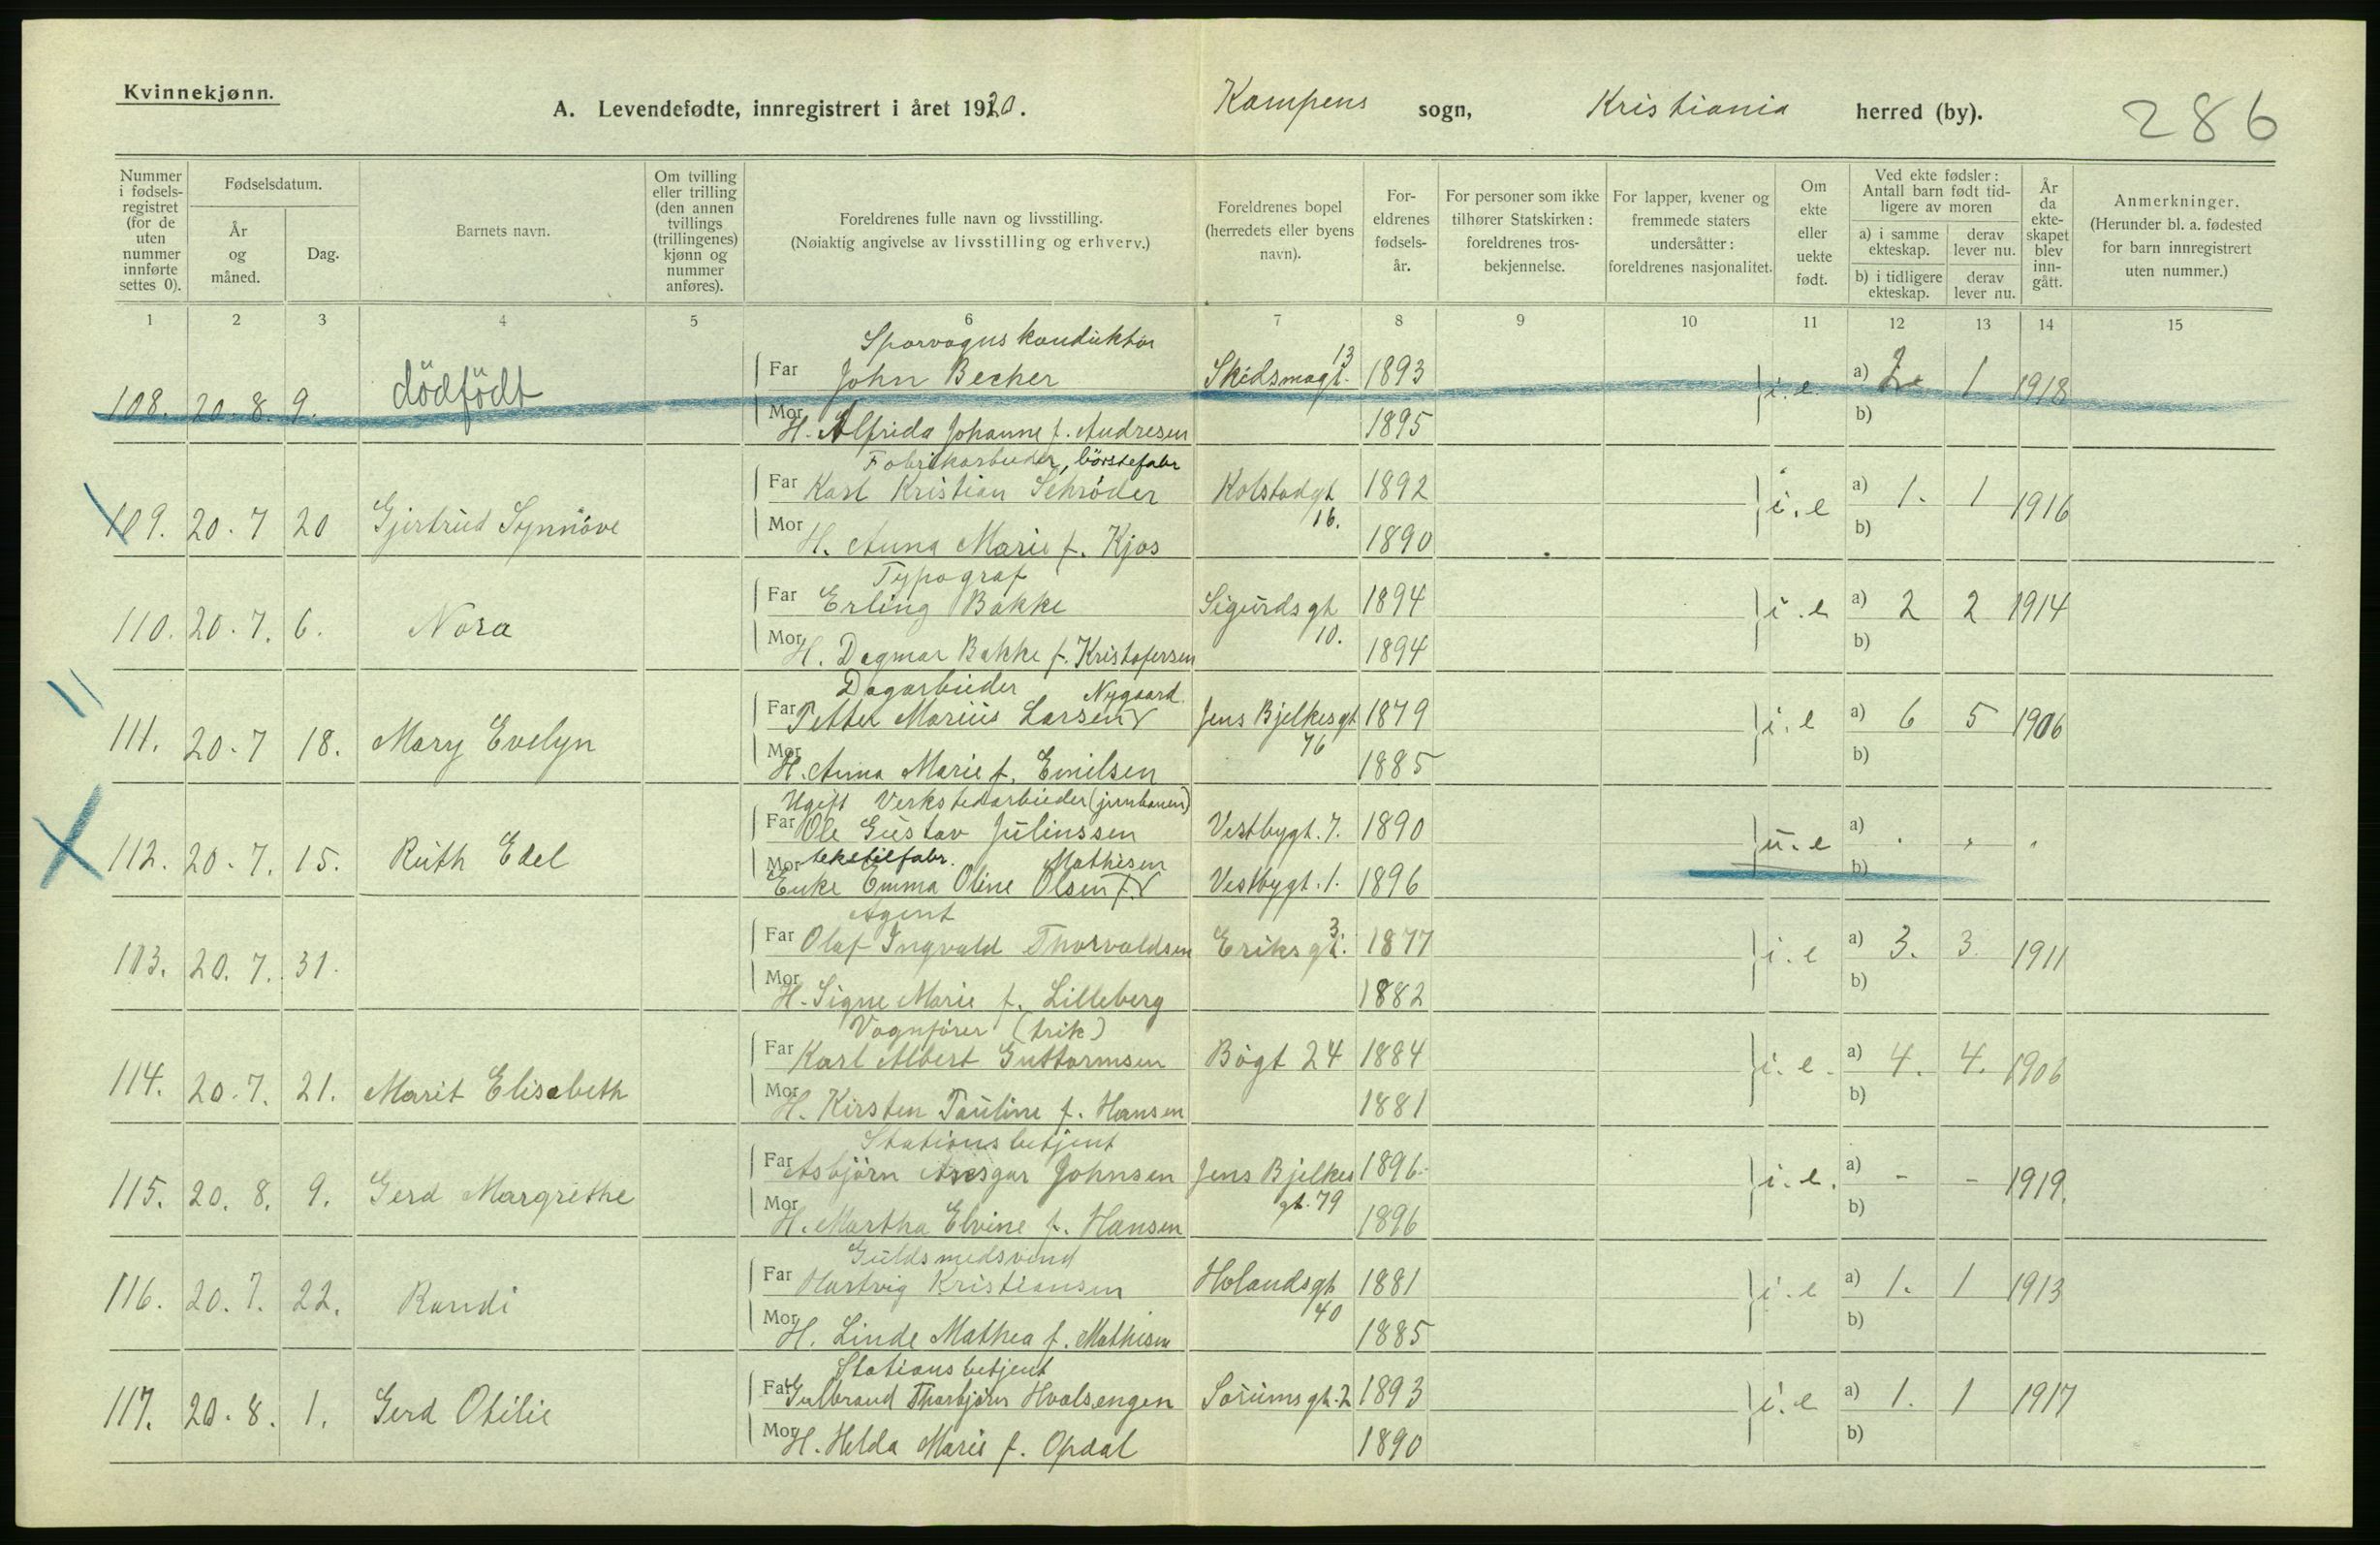 Kvinnekjønn.
A. Levendefødte, innregistrert i året 1920.
Kampens sogn, Kristiania herred (by).
286
Nummer i fødselsregistret (for de uten nummer innførte settes 0).
Fødselsdatum.
År og måned.
Dag.
Barnets navn.
Om tvilling eller trilling (den annen tvillings (trillingenes) kjønn og nummer anføres).
Foreldrenes fulle navn og livsstilling.
(Nøiaktig angivelse av livsstilling og erhverv.)
Foreldrenes bopel (herredets eller byens navn).
Foreldrenes fødselsår.
For personer som ikke tilhører Statskirken: foreldrenes trosbekjennelse.
For lapper, kvener og fremmede staters undersåtter: foreldrenes nasjonalitet.
Om ekte eller uekte født.
Ved ekte fødsler: Antall barn født tidligere av moren
a) i samme ekteskap.
derav lever nu.
b) i tidligere ekteskap.
derav lever nu.
År da ekteskapet blev inngått.
Anmerkninger.
(Herunder bl. a. fødested for barn innregistrert uten nummer.)
1 2 3 4 5 6 7 8 9 10 11 12 13 14 15
Sporvogns konduktør
108. 20. 8. 9. dödfödt Far John Becher Skidsmogt. 13 1893 i. e. a) 2 1 1918
Mor H. Alfrida Johanne f. Andresen 1895 b)
Fabrikarbeider, börstefabr
109. 20. 7 20 Gjertrud Synnöve Far Karl Kristian Schröder Kolstadgt 16. 1892 i. e a) 1. 1 1916
Mor H. Anna Marie f. Kjos 1890 b)
Typograf
110. 20. 7. 6. Nora Far Erling Bakke Sigurdsgt 10. 1894 i. e a) 2 2 1914
Mor H. Dagmar Bakke f. Kristofersen 1894 b)
Dagarbeider Nygaard
111. 20. 7 18. Mary Evelyn Far Petter Marius Larsen Jens Bjelkesgt 76 1879 i. e a) 6 5 1906
Mor H. Anna Marie f. Emilsen 1885 b)
Ugift Verkstedarbeider (jernbanen)
112. 20. 7. 15. Ruth Edel Far Ole Gustav Juliussen Vestbygt. 7. 1890 u. e a)
tekstilfabr. Mathisen
Mor Enke Emma Oline Olsen f. Vestbygt. 1. 1896 b)
Agent
113. 20. 7. 31. Far Olaf Ingvald Thorvaldsen Eriksgt. 3 1877 i. e a) 3. 3. 1911
Mor H. Signe Marie f. Lilleberg 1882 b)
Vognfører (trik)
114. 20. 7. 21. Marit Elisabeth Far Karl Albert Guttormsen Bögt 24 1884 i. e. a) 4. 4. 1906
Mor H. Kirsten Pauline f. Hansen 1881 b)
Stationsbetjent
115. 20. 8. 9. Gerd Margrethe Far Asbjörn Ansgar Johnsen Jens Bjelkes gt. 79 1896 i. e. a) - - 1919.
Mor H. Martha Elvine f. Hansen 1896 b)
Guldsmedsvend
116. 20. 7. 22. Randi Far Hartvig Kristiansen Holandsgt 40 1881 i. e a) 1. 1 1913
Mor H. Linde Mathea f. Mathisen 1885 b)
Stationsbetjent
117. 20. 8. 1. Gerd Otilie Far Gulbrand Thorbjörn Hvalsengen Sorumsgt. 2 1893 i. e a) 1. 1 1917
Mor H. Helda Marie f. Opdal 1890 b)